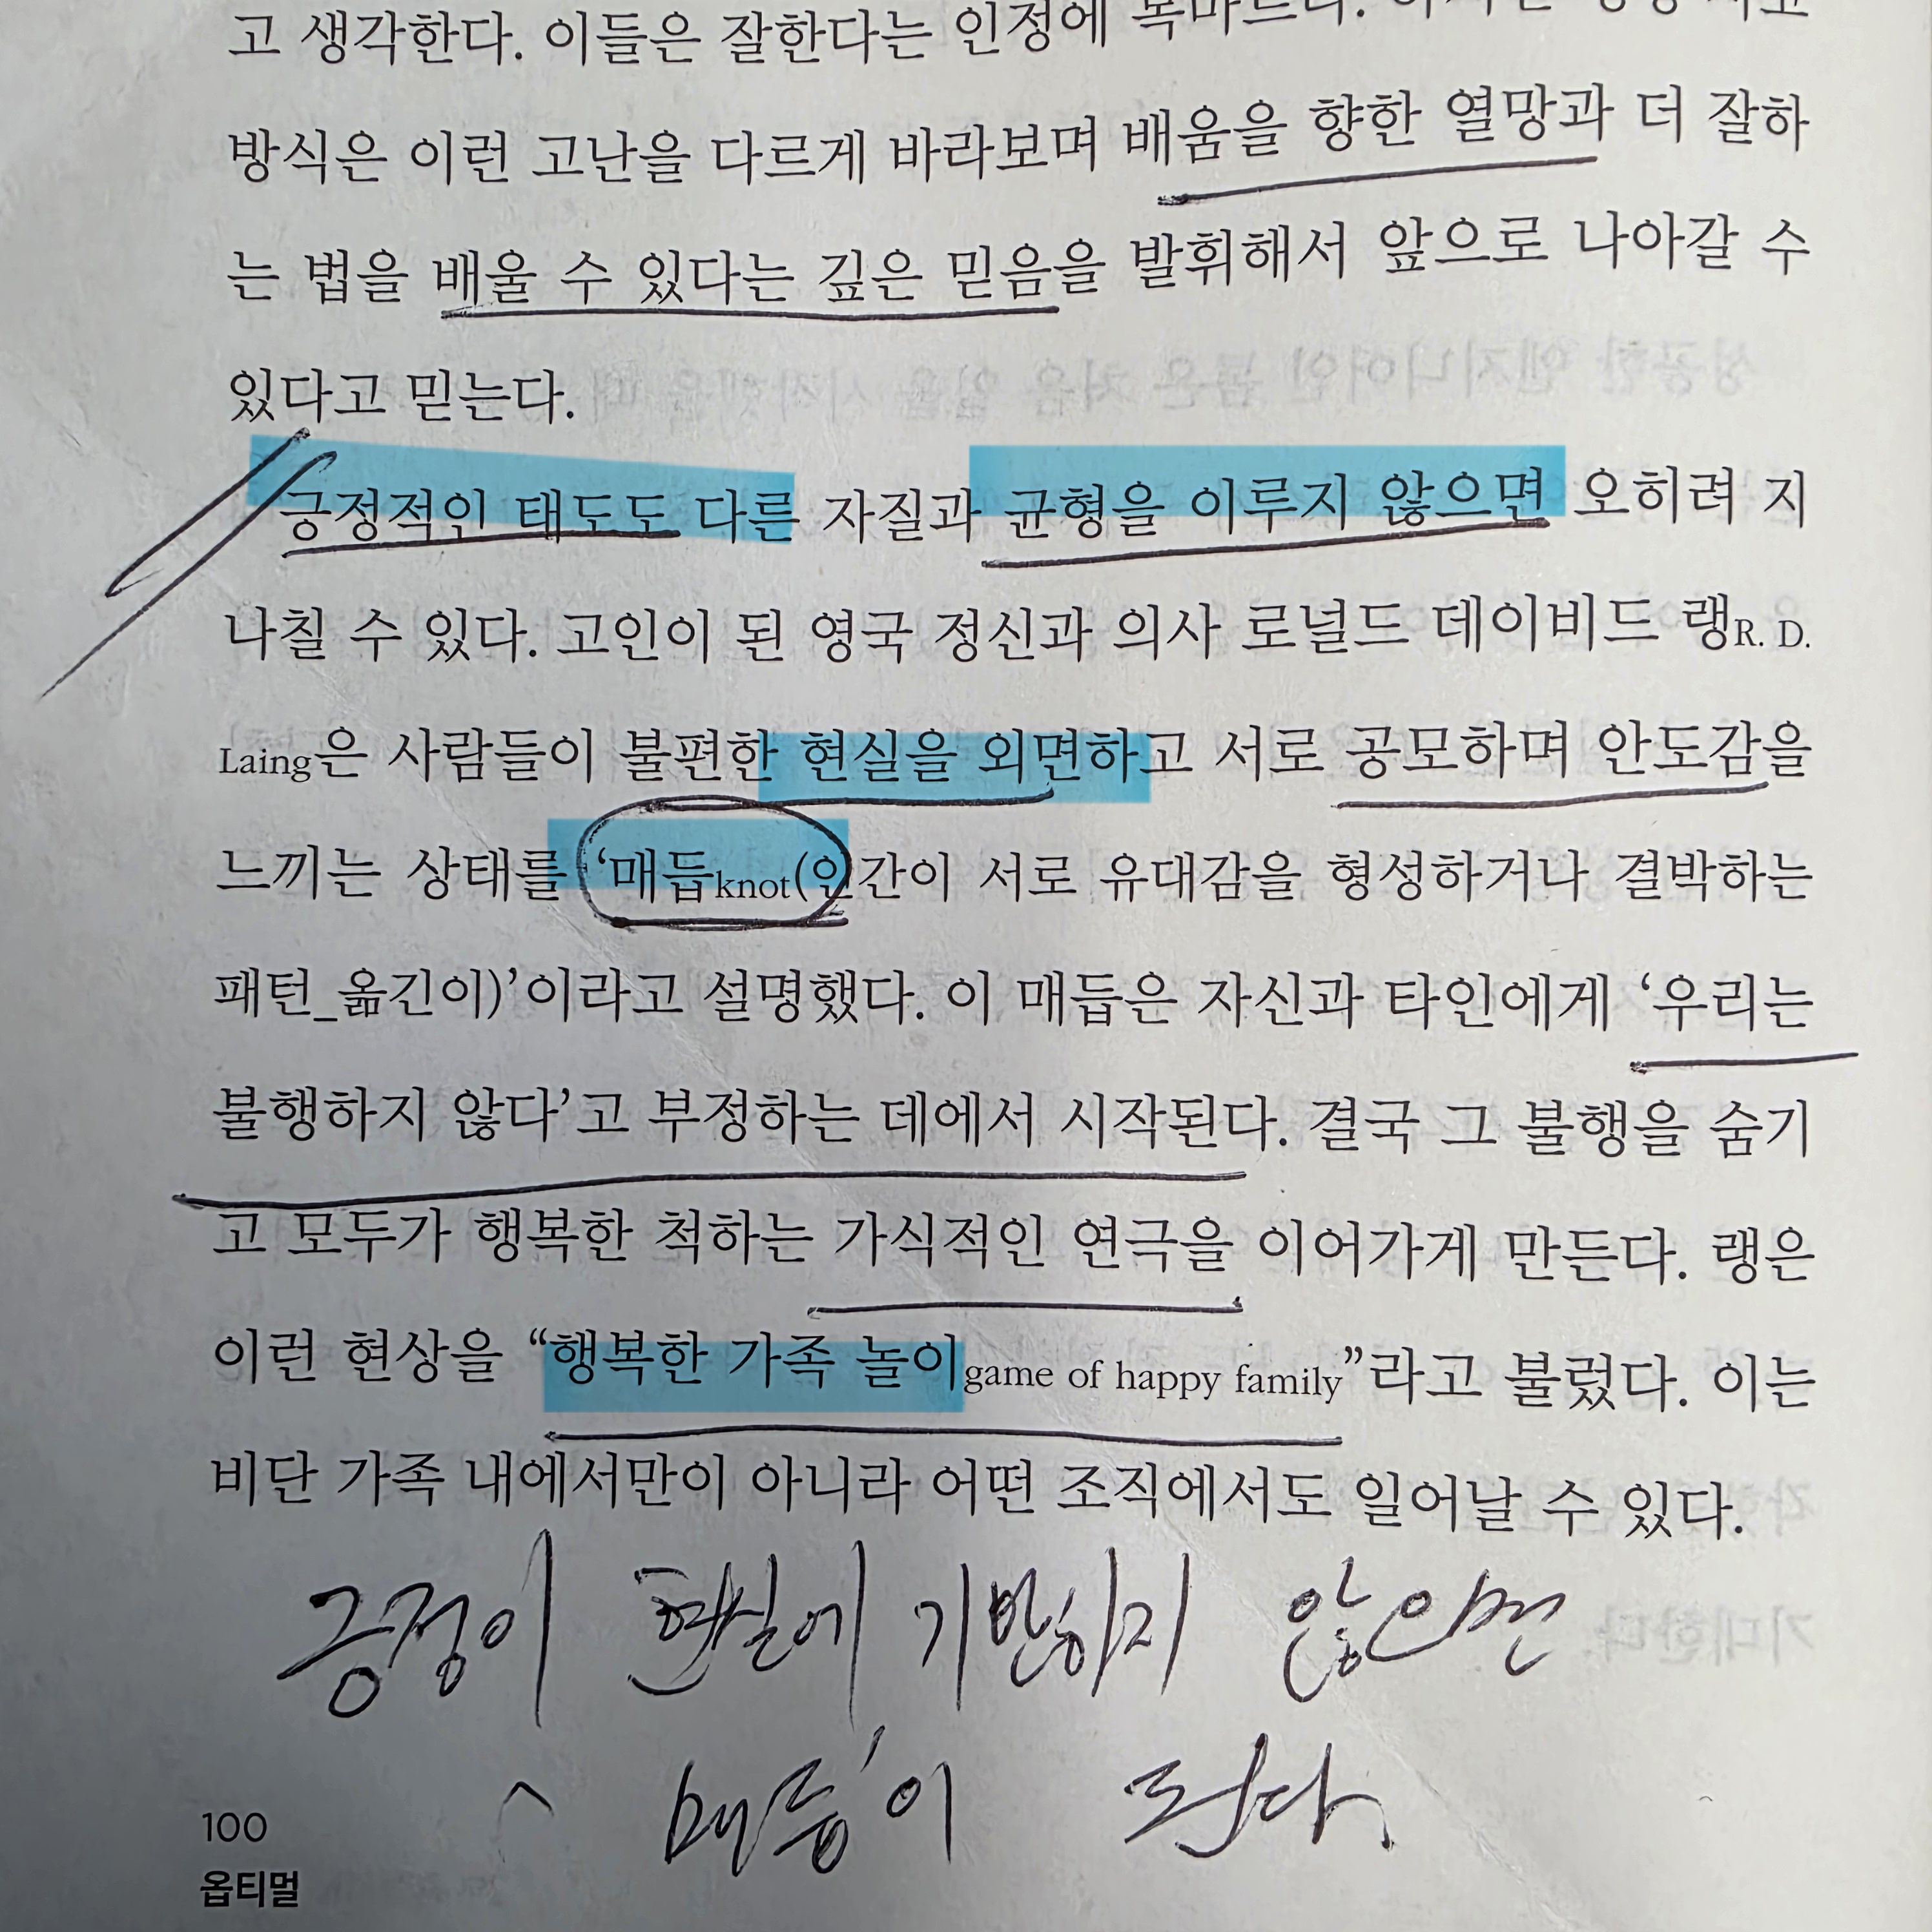 고 생각한다. 이들은 잘한다는 인정에 목마르다.
방식은 이런 고난을 다르게 바라보며 배움을 향한 열망과 더 잘하
는 법을 배울 수 있다는 깊은 믿음을 발휘해서 앞으로 나아갈 수
있다고 믿는다.
긍정적인 태도도 다른 자질과 균형을 이루지 않으면 오히려 지
나칠 수 있다. 고인이 된 영국 정신과 의사 로널드 데이비드 랭R. D.
Laing은 사람들이 불편한 현실을 외면하고 서로 공모하며 안도감을
느끼는 상태를 ‘매듭knot(인간이 서로 유대감을 형성하거나 결박하는
패턴_옮긴이)’이라고 설명했다. 이 매듭은 자신과 타인에게 ‘우리는
불행하지 않다’고 부정하는 데에서 시작된다. 결국 그 불행을 숨기
고 모두가 행복한 척하는 가식적인 연극을 이어가게 만든다. 랭은
이런 현상을 “행복한 가족 놀이game of happy family”라고 불렀다. 이는
비단 가족 내에서만이 아니라 어떤 조직에서도 일어날 수 있다.
긍정이 현실에 기반하지 않으면
매듭'이 된다.
100
옵티멀